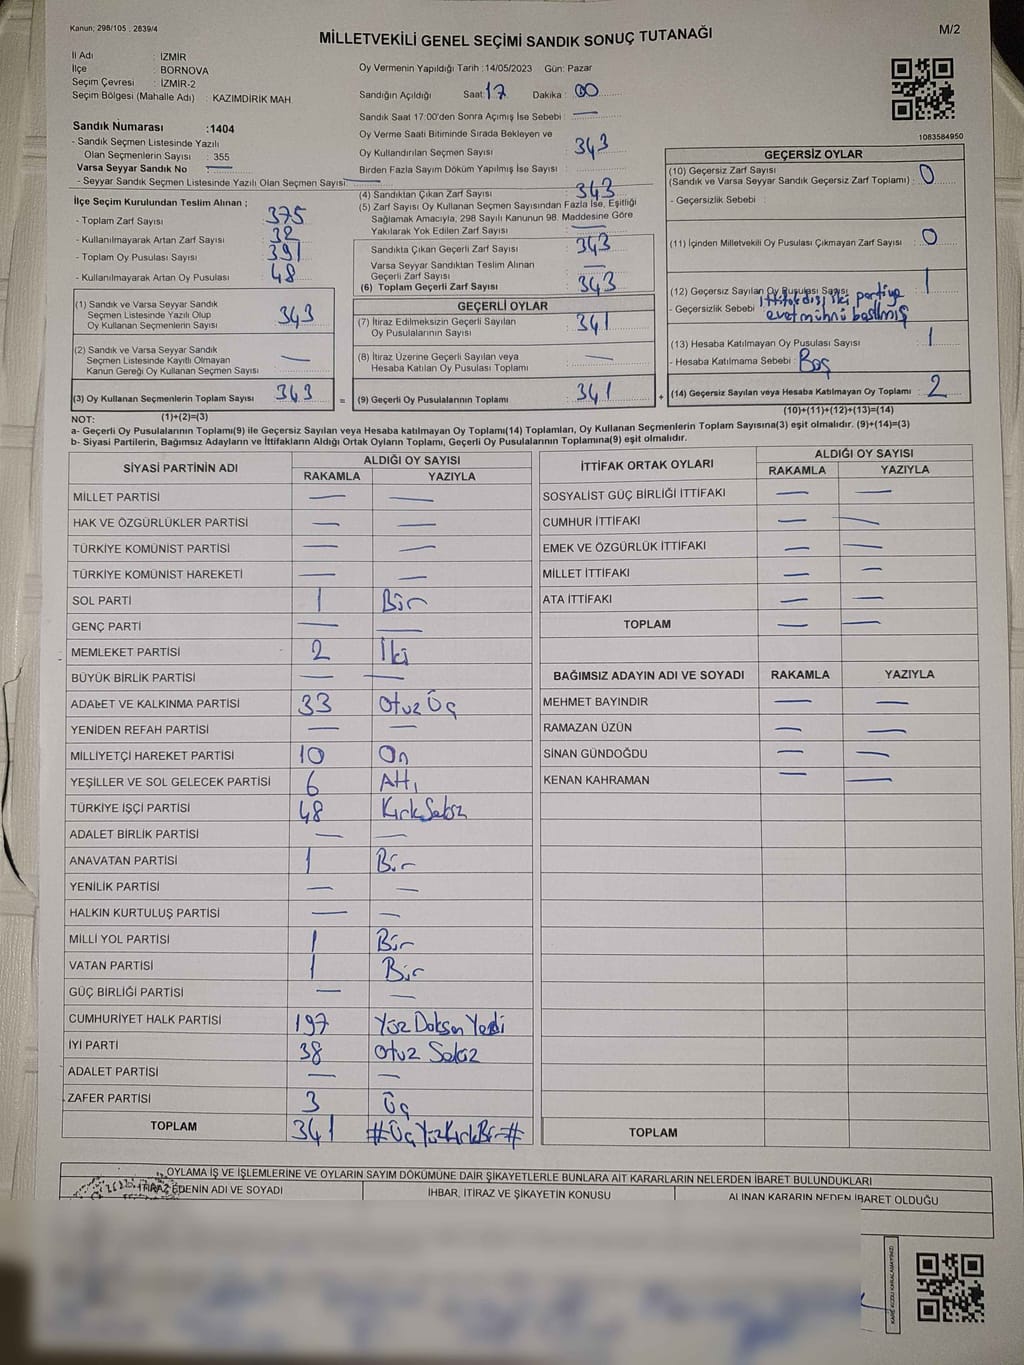 Kanun; 298/105 , 2839/4
M/2
MİLLETVEKİLİ GENEL SEÇİMİ SANDIK SONUÇ TUTANAĞI
İl Adı : İZMİR
İlçe : BORNOVA
Seçim Çevresi : İZMİR-2
Seçim Bölgesi (Mahalle Adı) : KAZIMDİRİK MAH.
Sandık Numarası :1404
- Sandık Seçmen Listesinde Yazılı
Olan Seçmenlerin Sayısı : 355
Varsa Seyyar Sandık No —
- Seyyar Sandık Seçmen Listesinde Yazılı Olan Seçmen Sayısı: —
Oy Vermenin Yapıldığı Tarih :14/05/2023 Gün: Pazar
Sandığın Açıldığı Saat: 17 Dakika : 00
Sandık Saat 17:00'den Sonra Açılmış İse Sebebi : —
Oy Verme Saati Bitiminde Sırada Bekleyen ve
Oy Kullandırılan Seçmen Sayısı : 343
Birden Fazla Sayım Döküm Yapılmış İse Sayısı : —
1083584950
İlçe Seçim Kurulundan Teslim Alınan ;
- Toplam Zarf Sayısı : 375
- Kullanılmayarak Artan Zarf Sayısı : 32
- Toplam Oy Pusulası Sayısı : 391
- Kullanılmayarak Artan Oy Pusulası : 48
(1) Sandık ve Varsa Seyyar Sandık
Seçmen Listesinde Yazılı Olup
Oy Kullanan Seçmenlerin Sayısı : 343
(2) Sandık ve Varsa Seyyar Sandık
Seçmen Listesinde Kayıtlı Olmayan
Kanun Gereği Oy Kullanan Seçmen Sayısı : —
(3) Oy Kullanan Seçmenlerin Toplam Sayısı : 343
(1)+(2)=(3)
(4) Sandıktan Çıkan Zarf Sayısı : 343
(5) Zarf Sayısı Oy Kullanan Seçmen Sayısından Fazla İse, Eşitliği
Sağlamak Amacıyla, 298 Sayılı Kanunun 98. Maddesine Göre
Yakılarak Yok Edilen Zarf Sayısı : —
Sandıkta Çıkan Geçerli Zarf Sayısı : 343
Varsa Seyyar Sandıktan Teslim Alınan
Geçerli Zarf Sayısı : —
(6) Toplam Geçerli Zarf Sayısı : 343
GEÇERLİ OYLAR
(7) İtiraz Edilmeksizin Geçerli Sayılan
Oy Pusulalarının Sayısı : 341
(8) İtiraz Üzerine Geçerli Sayılan veya
Hesaba Katılan Oy Pusulası Toplamı : —
= (9) Geçerli Oy Pusulalarının Toplamı : 341 +
GEÇERSİZ OYLAR
(10) Geçersiz Zarf Sayısı
(Sandık ve Varsa Seyyar Sandık Geçersiz Zarf Toplamı) : 0
- Geçersizlik Sebebi :
(11) İçinden Milletvekili Oy Pusulası Çıkmayan Zarf Sayısı : 0
(12) Geçersiz Sayılan Oy Pusulası Sayısı : 1
- Geçersizlik Sebebi : ittifak dışı iki partiye
evet mührü basılmış
(13) Hesaba Katılmayan Oy Pusulası Sayısı : 1
- Hesaba Katılmama Sebebi : Boş
(14) Geçersiz Sayılan veya Hesaba Katılmayan Oy Toplamı : 2
(10)+(11)+(12)+(13)=(14)
NOT:
a- Geçerli Oy Pusulalarının Toplamı(9) ile Geçersiz Sayılan veya Hesaba katılmayan Oy Toplamı(14) Toplamları, Oy Kullanan Seçmenlerin Toplam Sayısına(3) eşit olmalıdır. (9)+(14)=(3)
b- Siyasi Partilerin, Bağımsız Adayların ve İttifakların Aldığı Ortak Oyların Toplamı, Geçerli Oy Pusulalarının Toplamına(9) eşit olmalıdır.
SİYASİ PARTİNİN ADI ALDIĞI OY SAYISI
RAKAMLA YAZIYLA
MİLLET PARTİSİ — —
HAK VE ÖZGÜRLÜKLER PARTİSİ — —
TÜRKİYE KOMÜNİST PARTİSİ — —
TÜRKİYE KOMÜNİST HAREKETİ — —
SOL PARTİ 1 Bir
GENÇ PARTİ — —
MEMLEKET PARTİSİ 2 İki
BÜYÜK BİRLİK PARTİSİ — —
ADALET VE KALKINMA PARTİSİ 33 Otuz Üç
YENİDEN REFAH PARTİSİ — —
MİLLİYETÇİ HAREKET PARTİSİ 10 On
YEŞİLLER VE SOL GELECEK PARTİSİ 6 Altı
TÜRKİYE İŞÇİ PARTİSİ 48 Kırk Sekiz
ADALET BİRLİK PARTİSİ — —
ANAVATAN PARTİSİ 1 Bir
YENİLİK PARTİSİ — —
HALKIN KURTULUŞ PARTİSİ — —
MİLLİ YOL PARTİSİ 1 Bir
VATAN PARTİSİ 1 Bir
GÜÇ BİRLİĞİ PARTİSİ — —
CUMHURİYET HALK PARTİSİ 197 Yüz Doksan Yedi
İYİ PARTİ 38 Otuz Sekiz
ADALET PARTİSİ — —
ZAFER PARTİSİ 3 Üç
TOPLAM 341 #Üç Yüz Kırk Bir#
İTTİFAK ORTAK OYLARI ALDIĞI OY SAYISI
RAKAMLA YAZIYLA
SOSYALİST GÜÇ BİRLİĞİ İTTİFAKI — —
CUMHUR İTTİFAKI — —
EMEK VE ÖZGÜRLÜK İTTİFAKI — —
MİLLET İTTİFAKI — —
ATA İTTİFAKI — —
TOPLAM — —
BAĞIMSIZ ADAYIN ADI VE SOYADI RAKAMLA YAZIYLA
MEHMET BAYINDIR — —
RAMAZAN ÜZÜN — —
SİNAN GÜNDOĞDU — —
KENAN KAHRAMAN — —
TOPLAM
OYLAMA İŞ VE İŞLEMLERİNE VE OYLARIN SAYIM DÖKÜMÜNE DAİR ŞİKAYETLERLE BUNLARA AİT KARARLARIN NELERDEN İBARET BULUNDUKLARI
İTİRAZ EDENİN ADI VE SOYADI İHBAR, İTİRAZ VE ŞİKAYETİN KONUSU ALINAN KARARIN NEDEN İBARET OLDUĞU